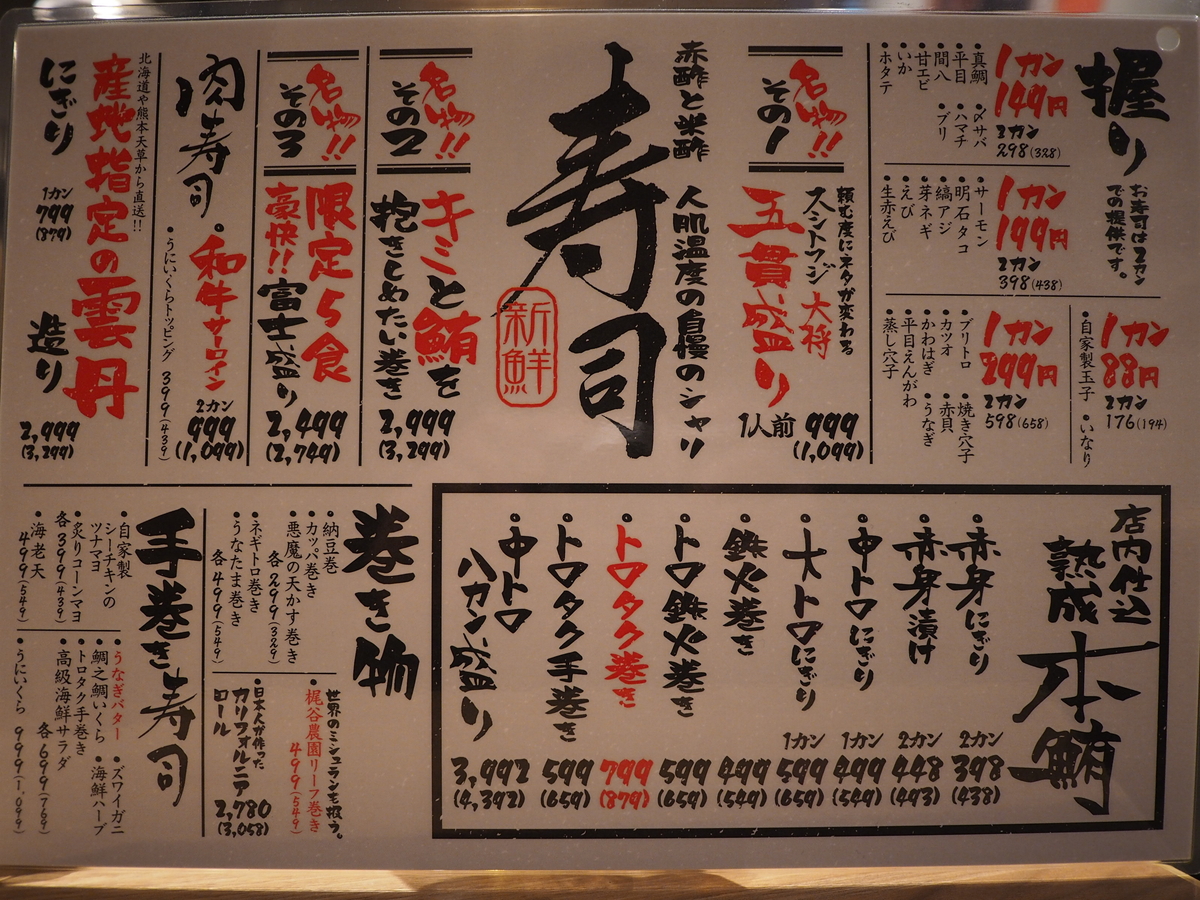 握り
お寿司は2カン
での提供です。
1カン
149円
2カン
298(328)
・真鯛
・平目
・間八
・甘エビ
・いか
・ホタテ
・〆サバ
・ハマチ
・ブリ
1カン
199円
2カン
398(438)
・サーモン
・明石タコ
・縞アジ
・芽ネギ
・えび
・生赤えび
1カン
88円
2カン
176(194)
・自家製玉子
・いなり
1カン
299円
2カン
598(658)
・ブリトロ
・カツオ
・かわはぎ
・平目えんがわ
・蒸し穴子
・焼き穴子
・赤貝
・うなぎ
名物!!
その1
頼む度にネタが変わる
スシトワジ 大将
五貫盛り
1人前 999
(1,099)
赤酢と米酢
人肌温度の自慢のシャリ
寿司
新鮮
名物!!
その2
キミと鮪を
抱きしめたい巻き
2,999
(3,299)
名物!!
その3
限定5食
豪快!!富士盛り
2,499
(2,749)
肉寿司
・和牛サーロイン
2カン
999
(1,099)
・うにいくらトッピング 399(439)
北海道や熊本天草から直送!!
産地指定の雲丹
にぎり
1カン
799
(879)
造り
2,999
(3,299)
店内仕込
熟成
本鮪
・赤身にぎり
2カン
398
(438)
・赤身漬け
2カン
448
(493)
・中トロにぎり
1カン
499
(549)
・大トロにぎり
1カン
599
(659)
・鉄火巻き
499
(549)
・トロ鉄火巻き
599
(659)
・トロタク巻き
799
(879)
・トロタク手巻き
599
(659)
・中トロ
八カン盛り
3,992
(4,392)
巻き物
・納豆巻
・カッパ巻き
・悪魔の天かす巻き
各299(329)
・ネギトロ巻き
・うなたま巻き
各499(549)
世界のミシュランも扱う。
・梶谷農園リーフ巻き
499(549)
・日本人が作った
カリフォルニア
ロール
2,780
(3,058)
手巻き寿司
・自家製
シーチキンの
ツナマヨ
・炙りコーンマヨ
各399(439)
・海老天
499(549)
・うなぎバター
・鯛之鯛いくら
・トロタク手巻き
・高級海鮮サラダ
・ズワイガニ
・海鮮ハーブ
各699(769)
・うにいくら 999(1,099)